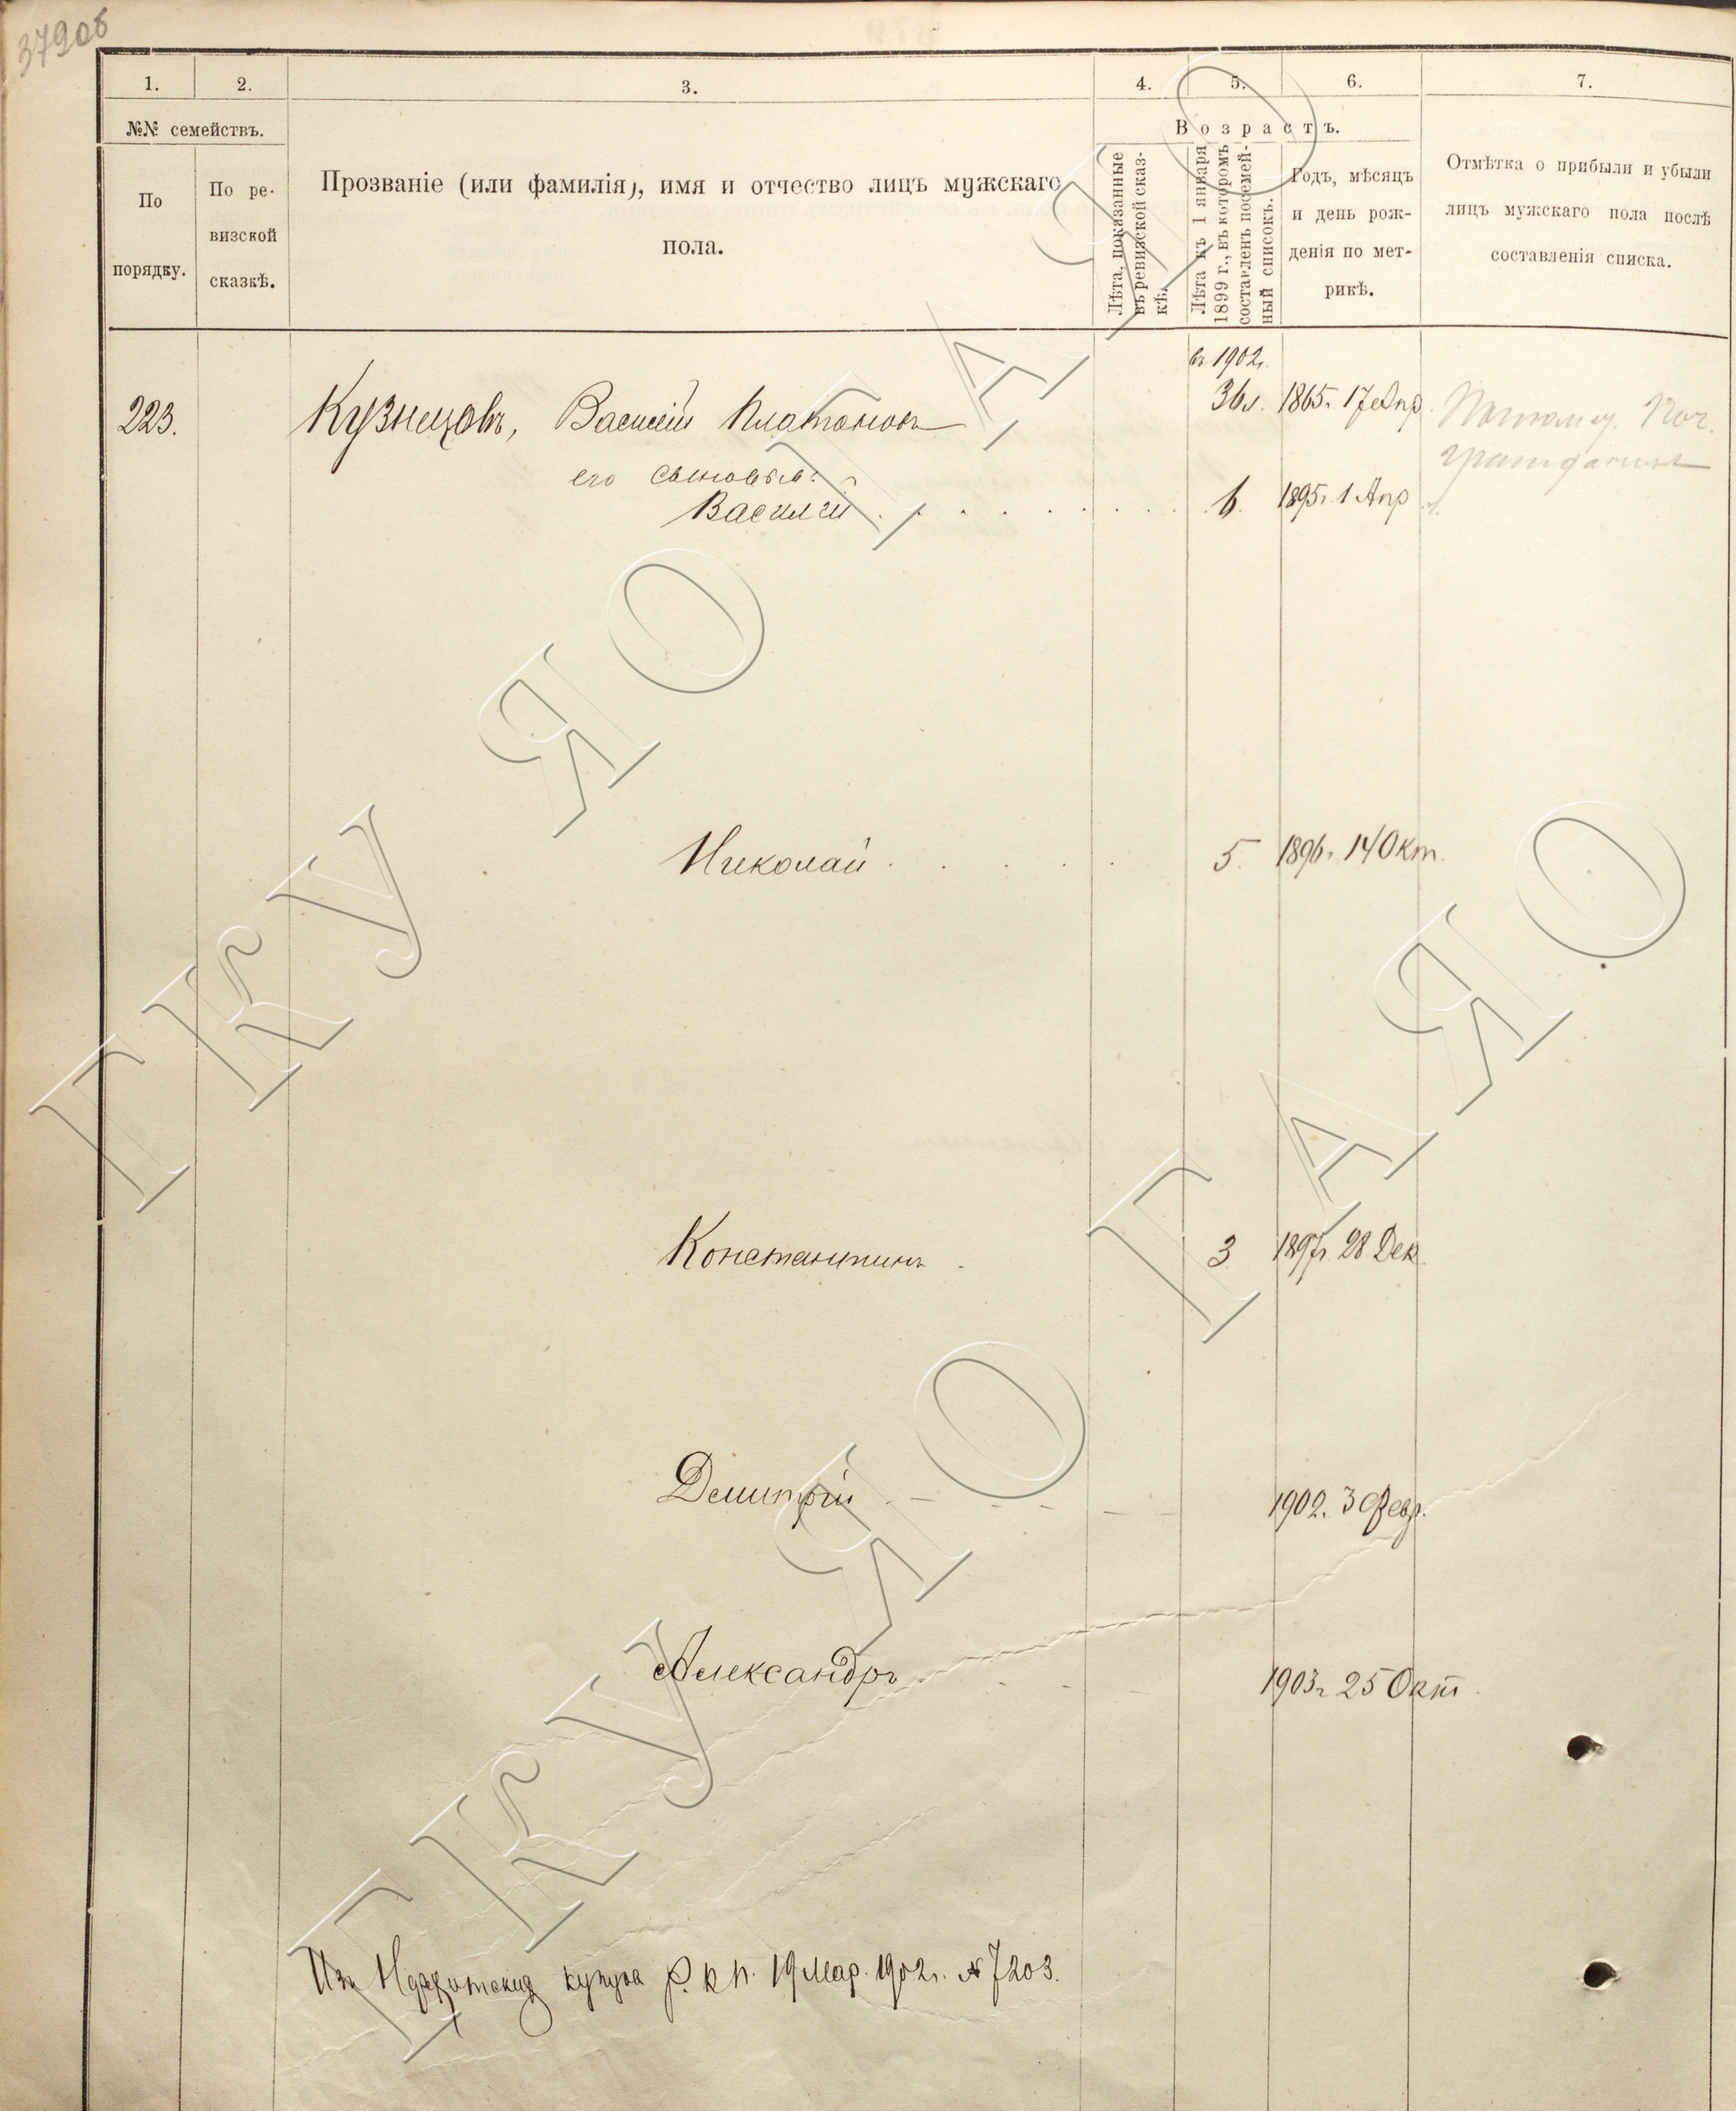 379об
1. 2. 3. 4. 5. 6. 7.
№№ семействъ.
По
порядку.
По ре-
визской
сказкѣ.
Прозваніе (или фамилія), имя и отчество лицъ мужскаго
пола.
Возрастъ.
Лѣта, показанные
въ ревизской сказ-
кѣ.
Лѣта къ 1 января
1899 г., въ которомъ
составленъ посемей-
ный списокъ.
Годъ, мѣсяцъ
и день рож-
денія по мет-
рикѣ.
Отмѣтка о прибыли и убыли
лицъ мужскаго пола послѣ
составленія списка.
въ 1902г.
223. Кузнецовъ, Василій Платоновъ 36л. 1865г. 17 Апр. Поч.
гражданинъ
его сыновья:
Василій 6. 1895г. 1 Апр
Николай 5. 1896г. 14 Окт.
Константинъ 3 1897г. 28 Дек.
Дмитрій 1902. 3 Февр.
Александръ 1903г. 25 Окт.
Изъ купцовъ р. К П. 19 Мар. 1902г. № 7203.
ГКУ ЯО ГАЯО
ГКУ ЯО ГАЯО